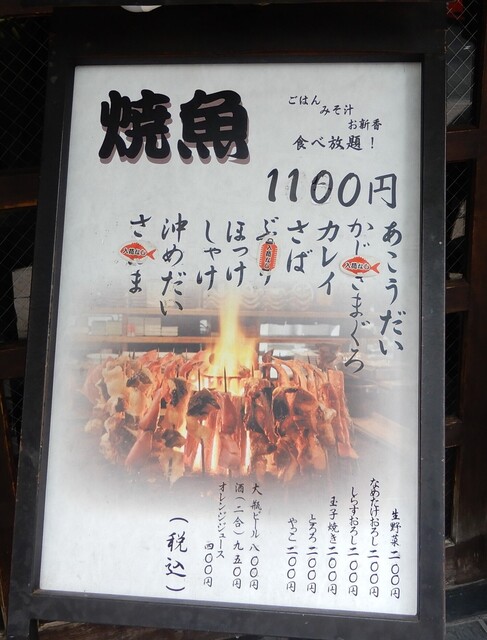 焼魚
ごはん
みそ汁
お新香
食べ放題！
1100円
あこうだい
かじきまぐろ
入荷なし
カレイ
さば
ぶり
入荷なし
ほっけ
しゃけ
沖めだい
さんま
入荷なし
生野菜 二〇〇円
なめたけおろし 二〇〇円
しらすおろし 二〇〇円
玉子焼き 二〇〇円
とろろ 二〇〇円
やっこ 二〇〇円
大瓶ビール 八〇〇円
酒(二合) 九五〇円
オレンジジュース 四〇〇円
(税込)